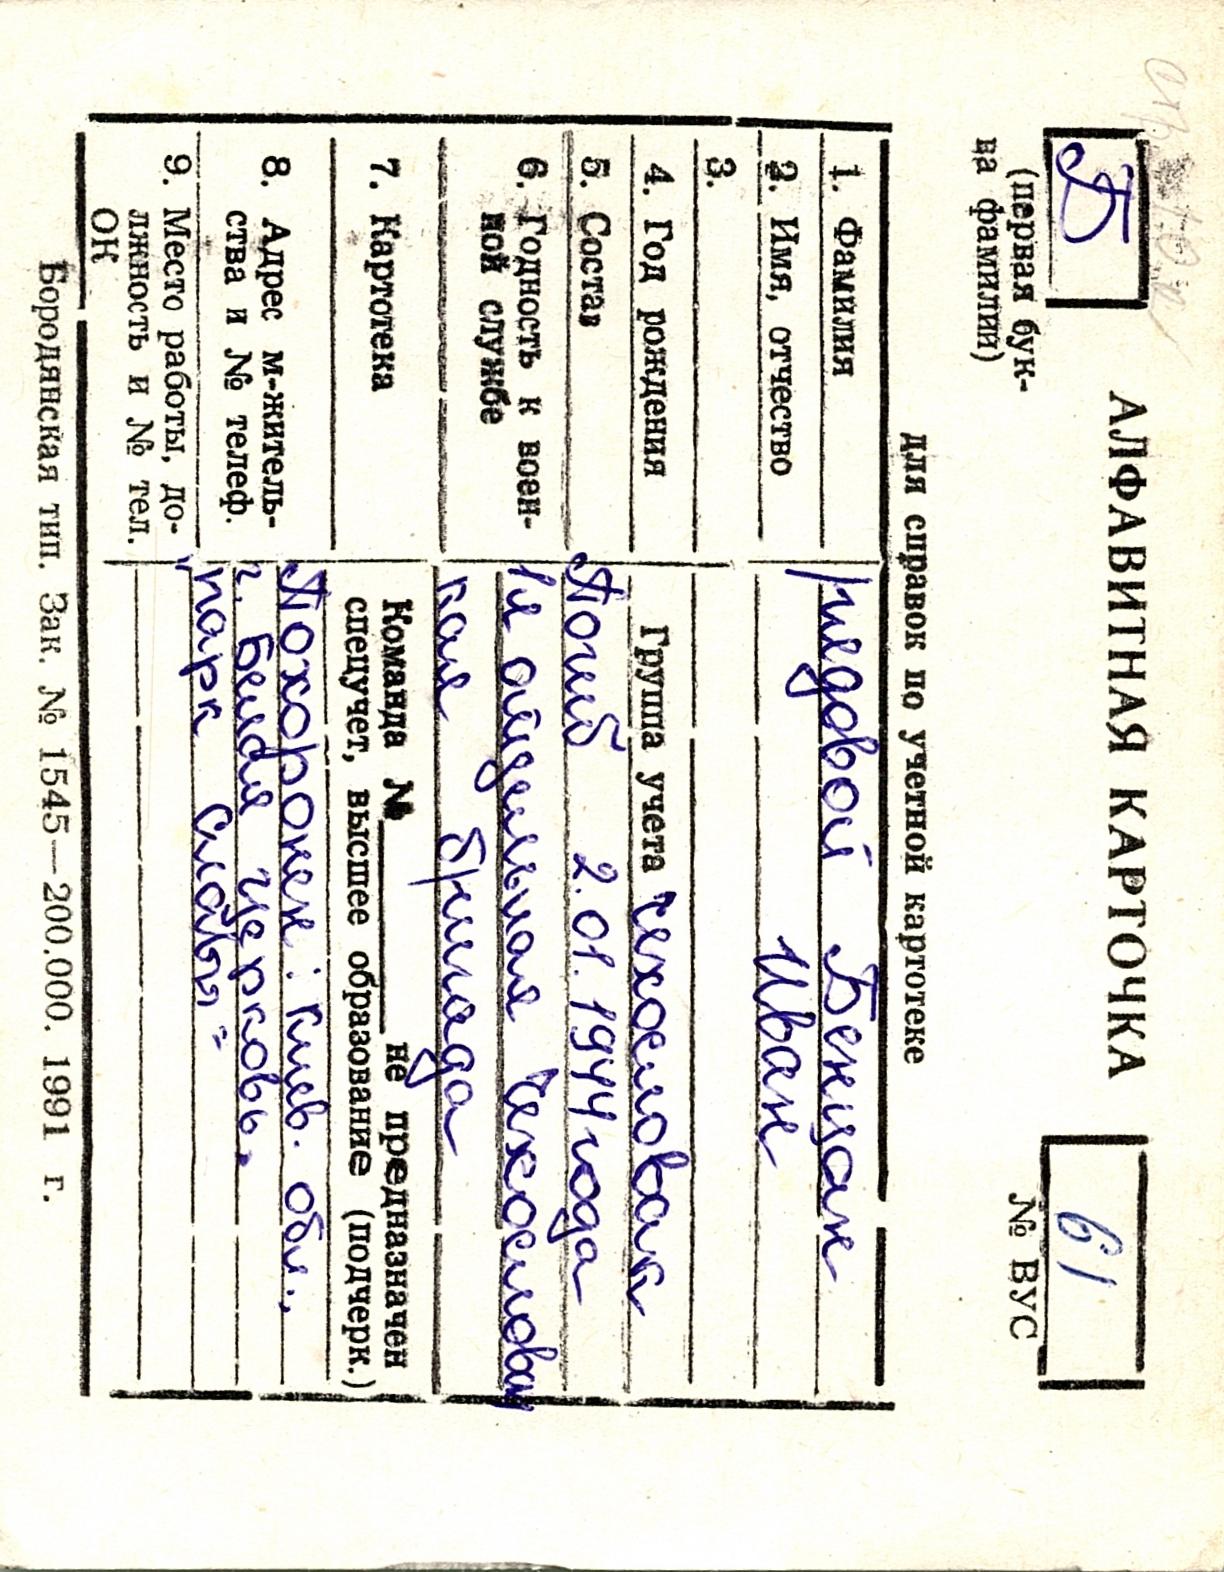 Б
(первая бук-
ва фамилии)
АЛФАВИТНАЯ КАРТОЧКА
61
№ ВУС
для справок по учетной картотеке
1. Фамилия рядовой Бенцан
2. Имя, отчество Иван
3.
4. Год рождения Группа учета чехословак
5. Состав Погиб 2.01.1944 года
6. Годность к воен-
ной службе
1я отдельная Чехословац
кая бригада
7. Картотека
Команда № не предназначен
спецучет, высшее образование (подчерк.)
8. Адрес м-житель-
ства и № телеф.
Похоронен: Киев. обл.,
г. Белая Церковь.
9. Место работы, до-
лжность и № тел.
ОК
"парк Славы"
Бородянская тип. Зак. № 1545—200.000. 1991 г.